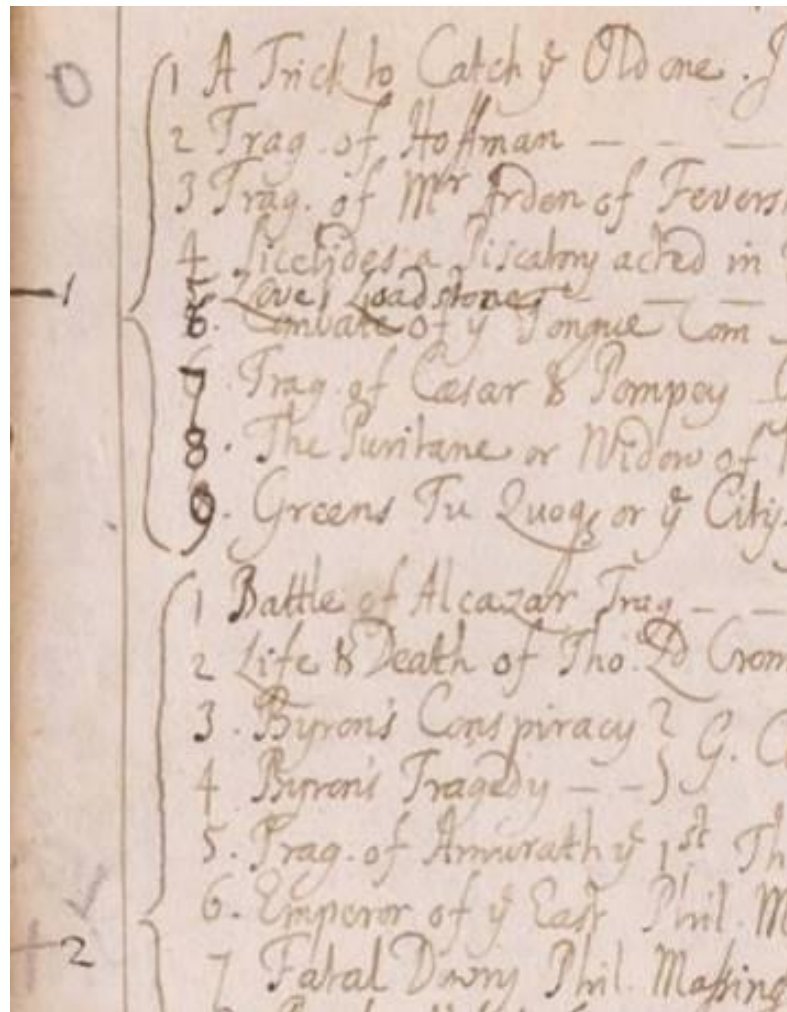 0
1 A Trick to Catch yᵉ Old one. J
2 Trag. of Hoffman — - —
3 Trag. of Mʳ Arden of Fevers
4 Sicelides a Piscatory acted in
1
5 Loves Loadstone — — —
6. Combate of yᵉ Tongue Com
7. Trag. of Cæsar & Pompey
8. The Puritane or Widow of
9. Greens Tu Quoq; or yᵉ City
1 Battle of Alcazar Trag — —
2 Life & Death of Tho. Ld Crom
3. Byron's Conspiracy } G. C
4 Byron's Tragedy — —
5. Trag. of Amurath yᵉ 1ˢᵗ Th
6. Emperor of yᵉ East Phil. M
2
7 Fatal Dowry Phil. Massing